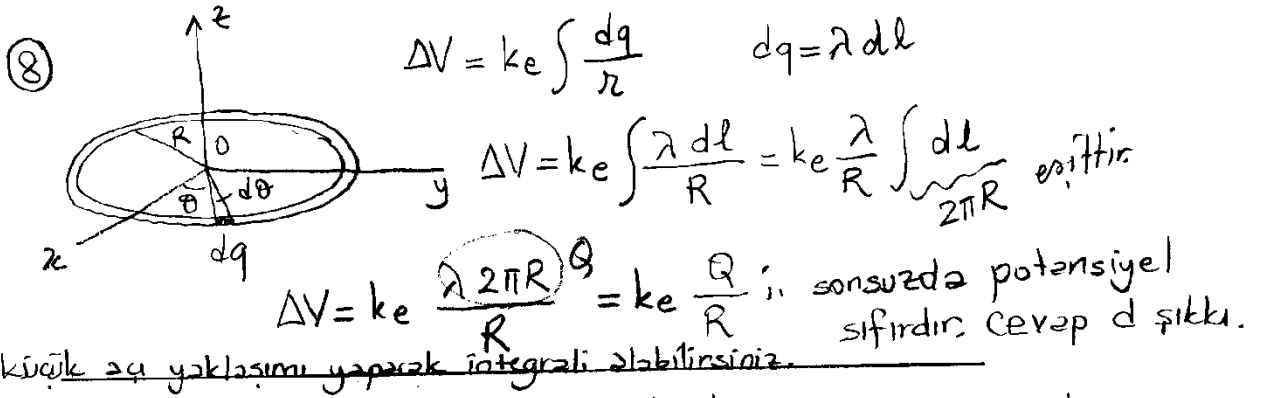 8
z
ΔV = ke ∫ dq/r dq = λ dl
R O
ΔV = ke ∫ λ dl/R = ke λ/R ∫ dl eşittir.
2πR
y
θ dθ
x dq
ΔV = ke λ 2πR/R Q = ke Q/R ; sonsuzda potansiyel
sıfırdır. Cevap d şıkkı.
küçük açı yaklaşımı yaparak integrali alabilirsiniz.